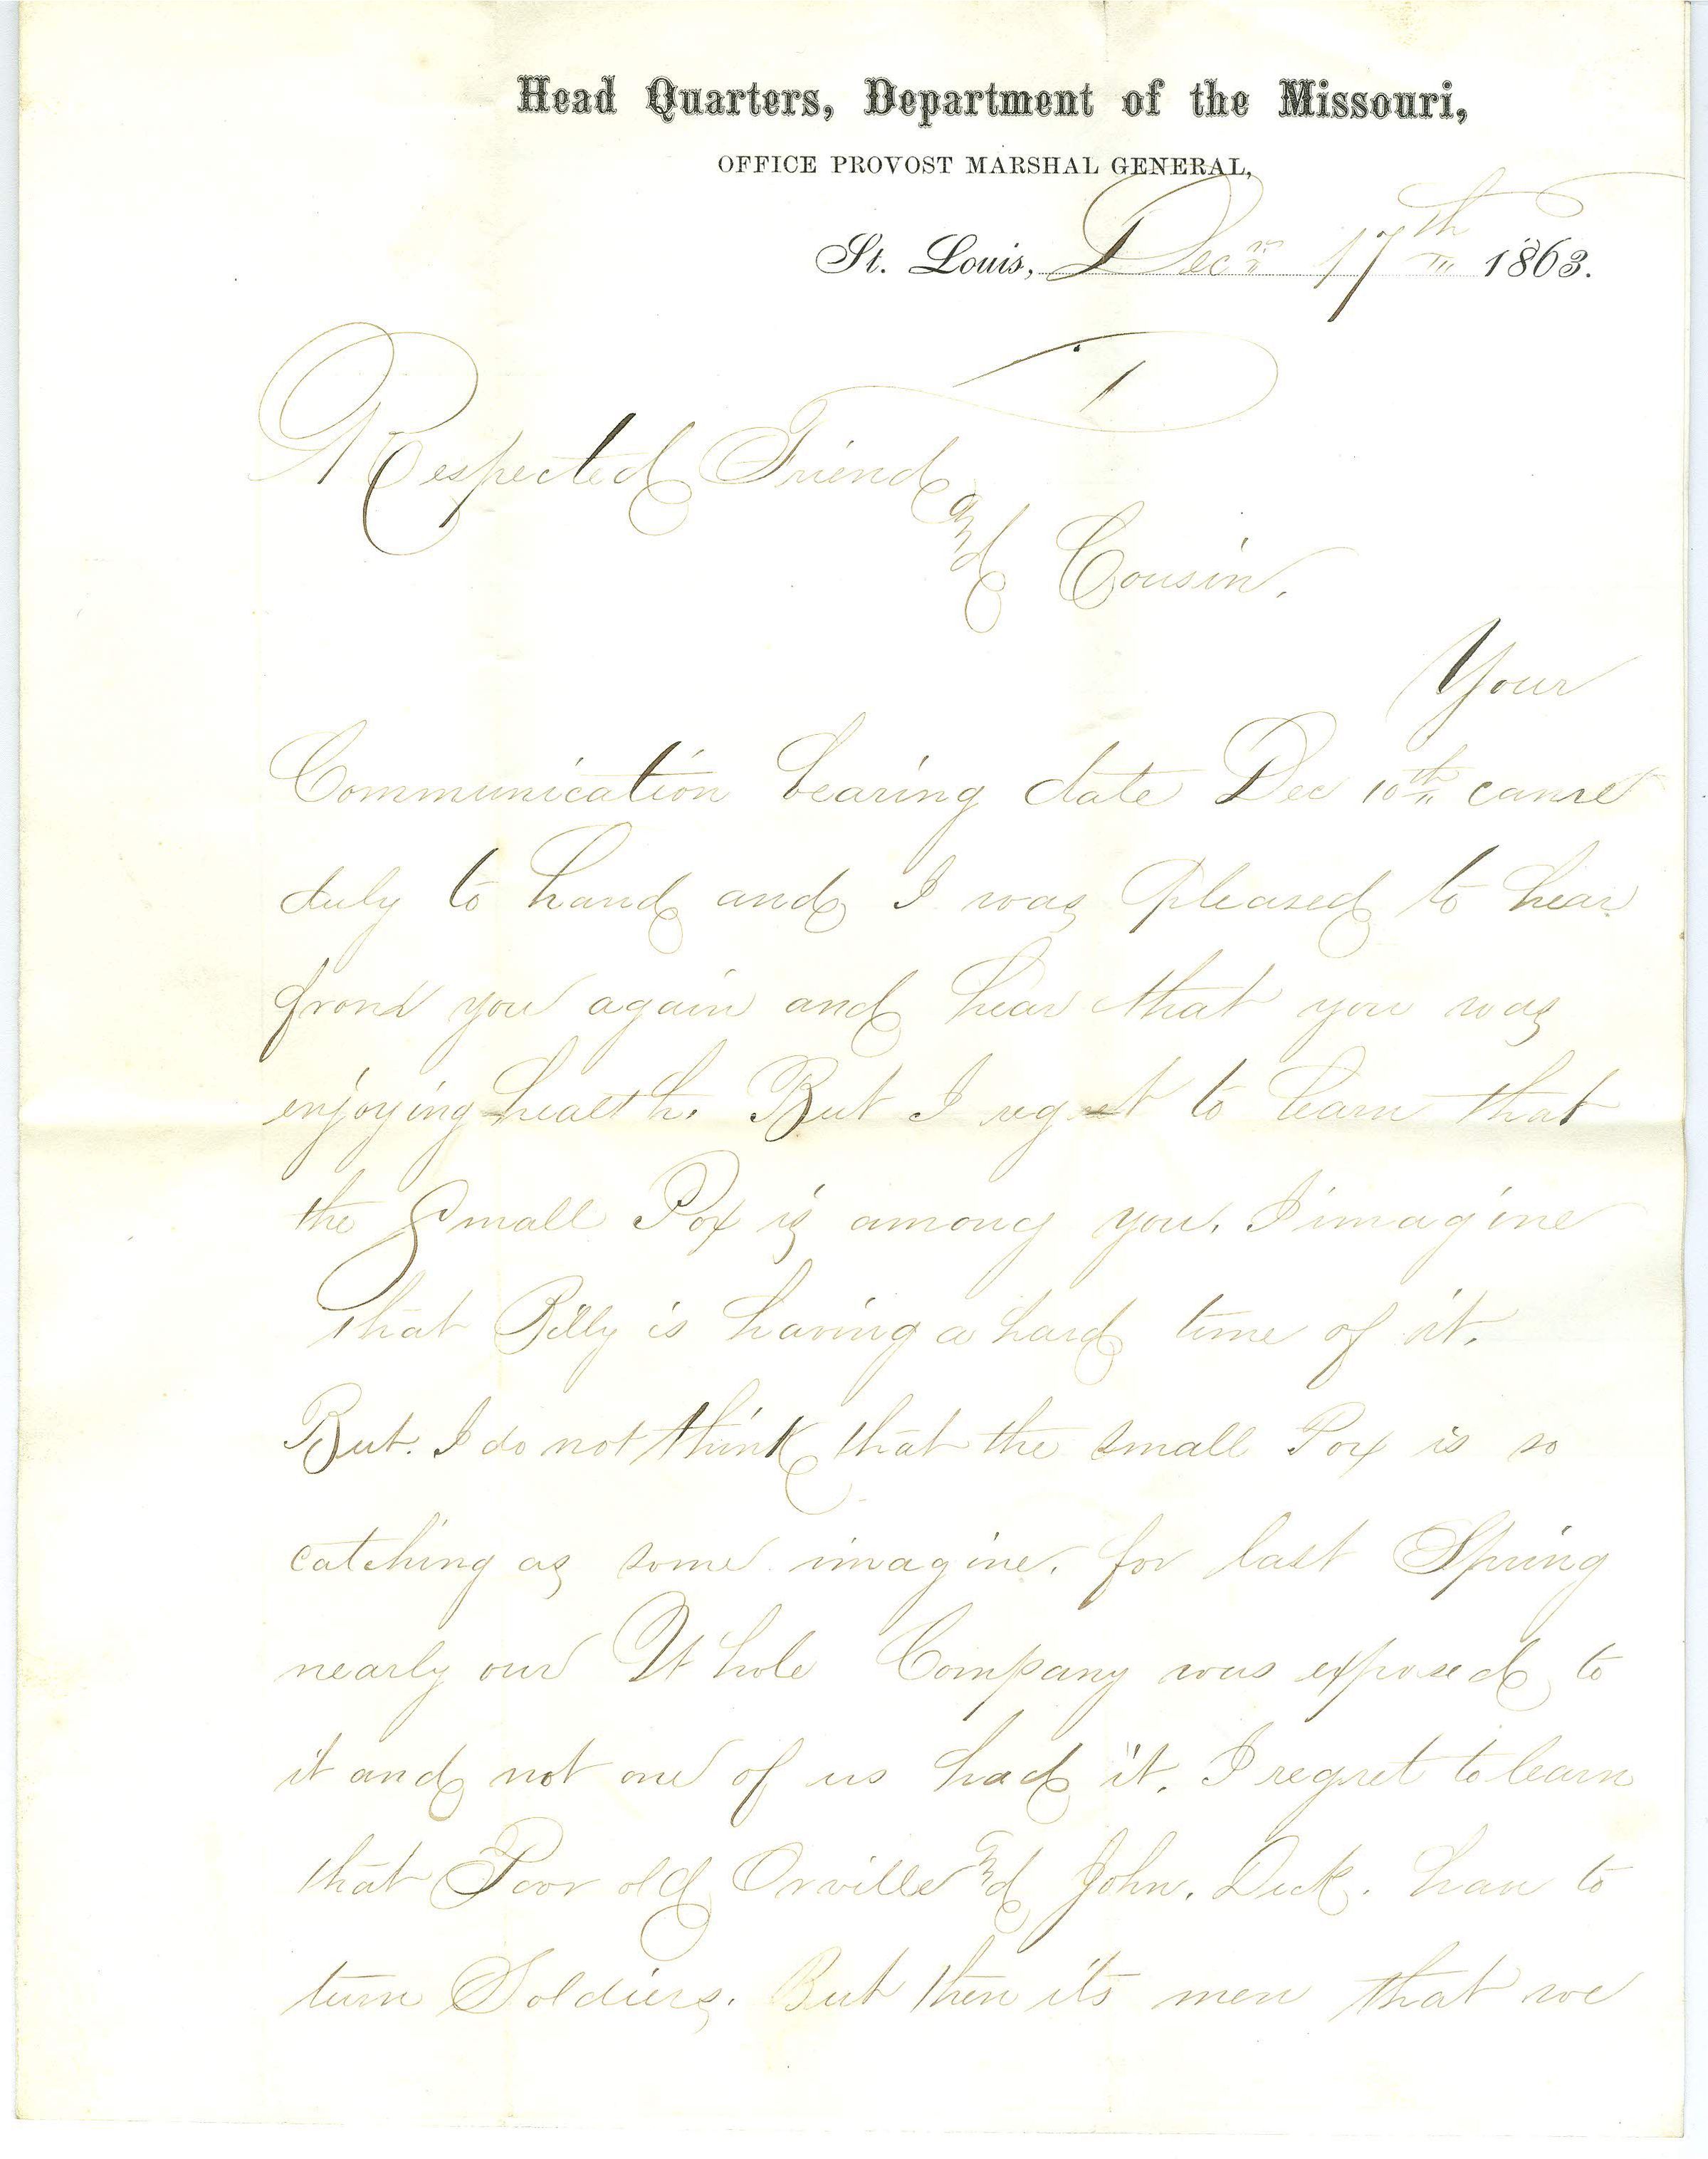 Head Quarters, Department of the Missouri,
OFFICE PROVOST MARSHAL GENERAL,
St. Louis, Decr 17th 1863.
Respected Friend
and Cousin.
Your
Communication bearing date Dec 10th came
duly to hand and I was pleased to hear
from you again and hear that you was
enjoying health. But I regret to learn that
the Small Pox is among you. I imagine
that Billy is having a hard time of it.
But. I do not think that the small Pox is so
catching as some imagine. for last Spring
nearly our Whole Company was exposed to
it and not one of us had it. I regret to learn
that Poor old Orville and John. Dick. have to
turn Soldiers. But then its men that we